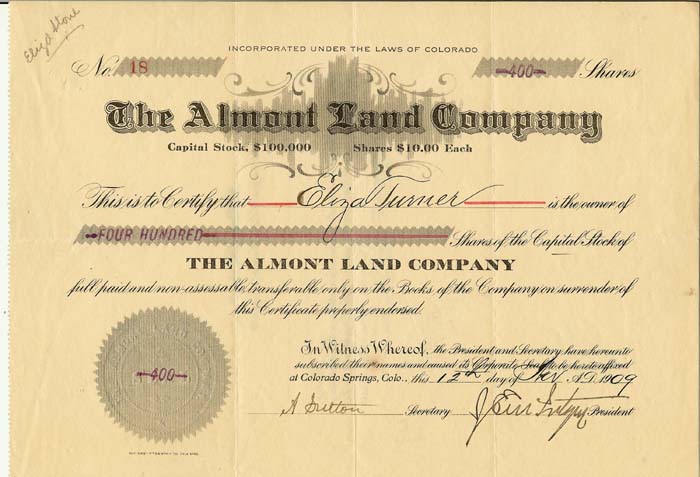 Eliza Stone
INCORPORATED UNDER THE LAWS OF COLORADO
No. 18 -400- Shares
The Almont Land Company
Capital Stock, $100,000 Shares $10.00 Each
This is to Certify that Eliza Turner is the owner of
-FOUR HUNDRED- Shares of the Capital Stock of
THE ALMONT LAND COMPANY
full paid and non-assessable, transferable only on the Books of the Company on surrender of
this Certificate properly endorsed.
In Witness Whereof, the President and Secretary have hereunto
subscribed their names and caused its Corporate Seal to be hereto affixed
at Colorado Springs, Colo., this 12th day of A.D. 1909
-400-
A Sutton Secretary President